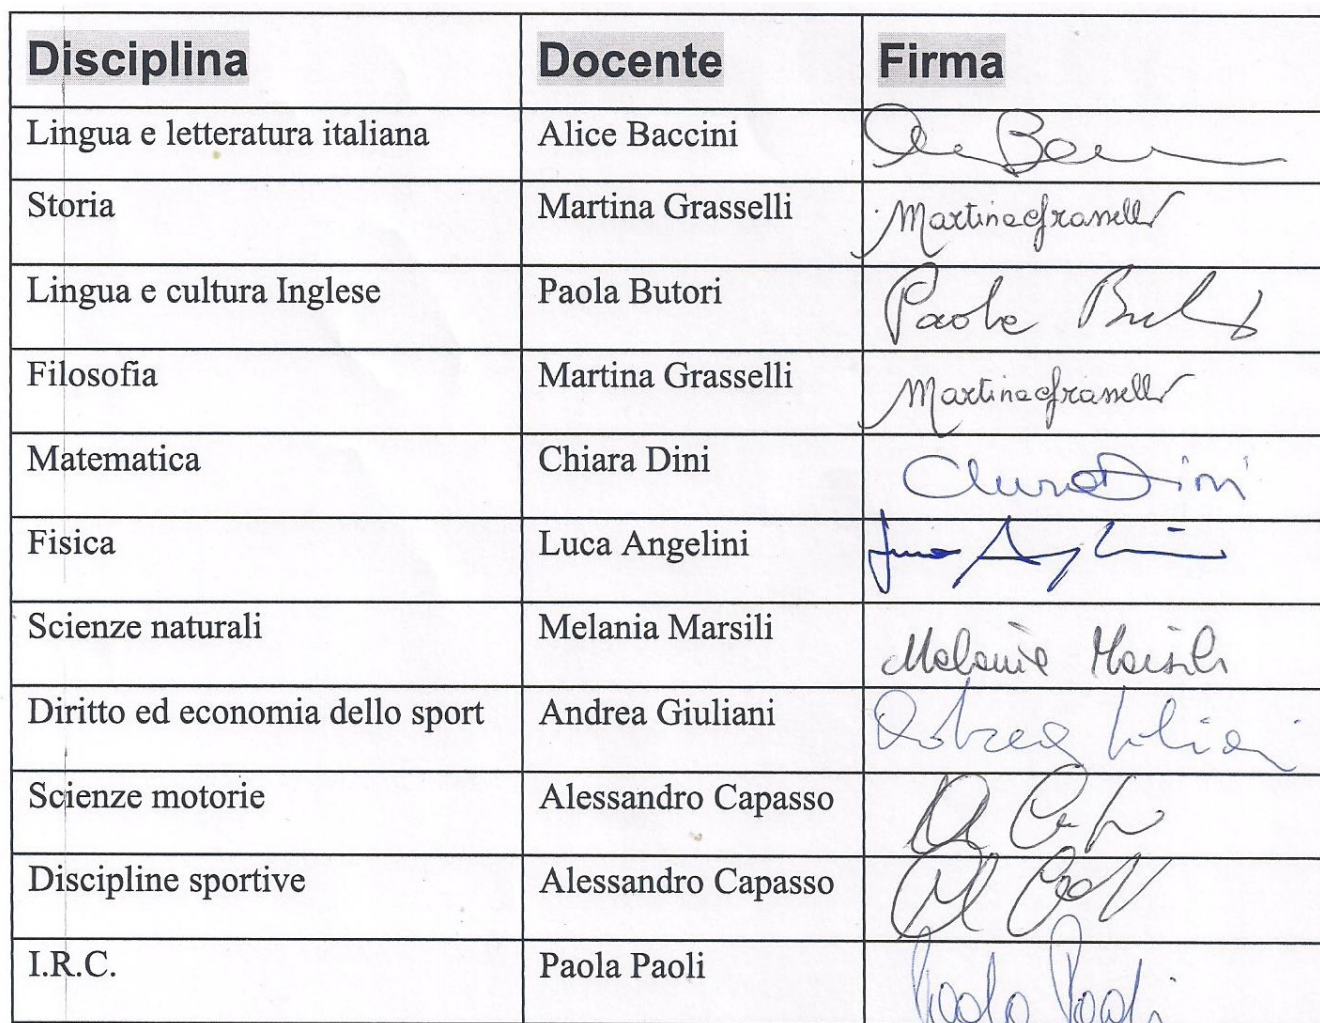 Disciplina Docente Firma
Lingua e letteratura italiana Alice Baccini
Storia Martina Grasselli Martina Grasselli
Lingua e cultura Inglese Paola Butori Paola
Filosofia Martina Grasselli Martina Grasselli
Matematica Chiara Dini Chiara Dini
Fisica Luca Angelini
Scienze naturali Melania Marsili Melania Marsili
Diritto ed economia dello sport Andrea Giuliani
Scienze motorie Alessandro Capasso
Discipline sportive Alessandro Capasso
I.R.C. Paola Paoli Paola Paoli